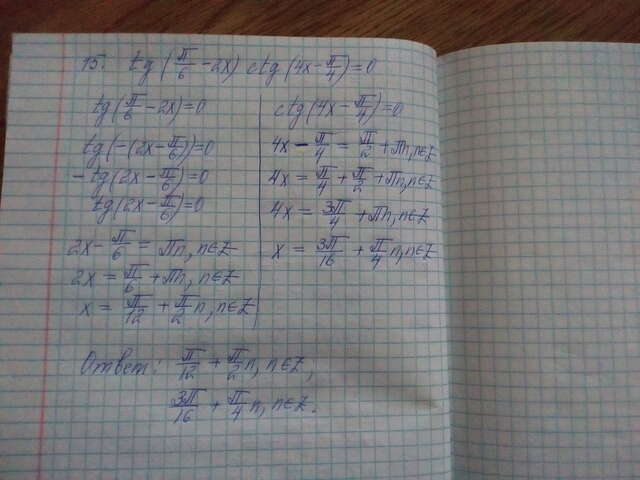 15. tg(π/6 - 2x) ctg(4x - π/4) = 0
tg(π/6 - 2x) = 0
tg(-(2x - π/6)) = 0
- tg(2x - π/6) = 0
tg(2x - π/6) = 0
2x - π/6 = πn, n∈Z
2x = π/6 + πn, n∈Z
x = π/12 + π/2 n, n∈Z
ctg(4x - π/4) = 0
4x - π/4 = π/2 + πn, n∈Z
4x = π/4 + π/2 + πn, n∈Z
4x = 3π/4 + πn, n∈Z
x = 3π/16 + π/4 n, n∈Z
Ответ: π/12 + π/2 n, n∈Z;
3π/16 + π/4 n, n∈Z.